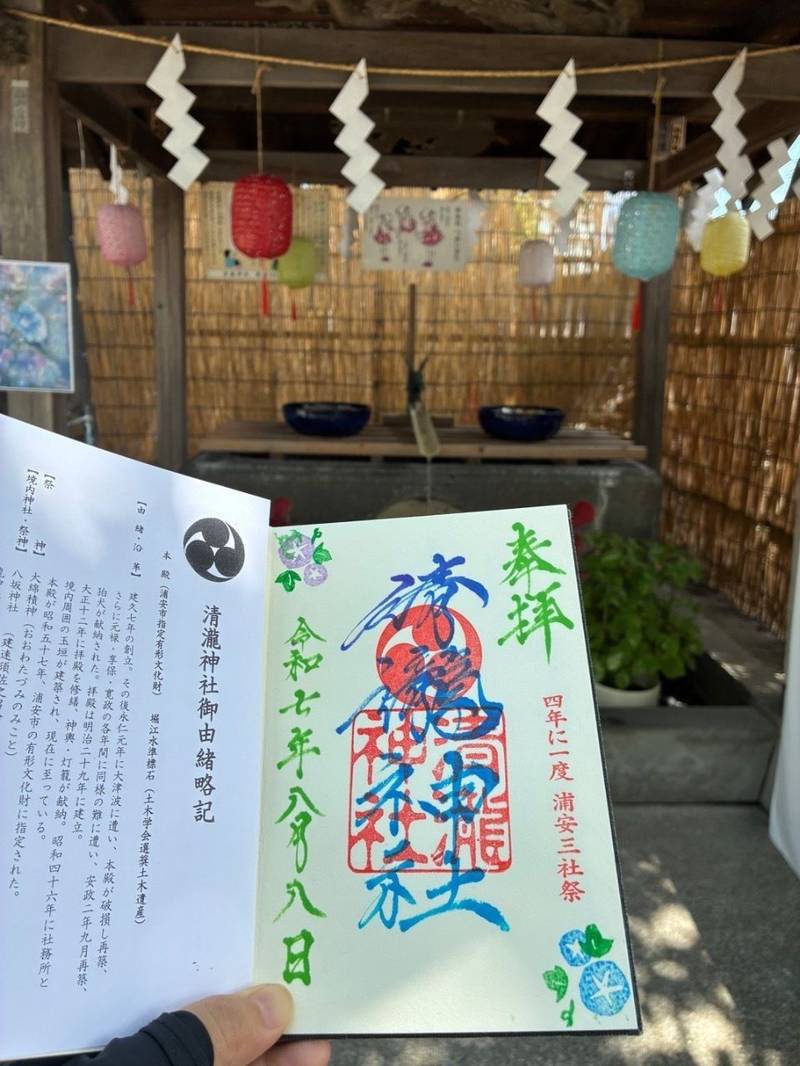 奉拝
四年に一度 浦安三社祭
清瀧神社
清瀧神社
令和七年八月八日
清瀧神社御由緒略記
本 殿(浦安市指定有形文化財) 堀江水準標石(土木学会選奨土木遺産)
【由 緒・沿 革】 建久七年の創立。その後永仁元年に大津波に遭い、本殿が破損し再築、
さらに元禄・享保・寛政の各年間に同様の難に遭い、安政二年九月再築、
狛犬が献納された。拝殿は明治二十九年に建立。
大正十二年に拝殿を修繕、神輿・灯籠が献納。昭和四十六年に社務所と
境内周囲の玉垣が建築され、現在に至っている。
本殿が昭和五十七年、浦安市の有形文化財に指定された。
【祭 神】 大綿積神(おおわたづみのみこと)
【境内神社・祭神】 八坂神社 (建速須佐之